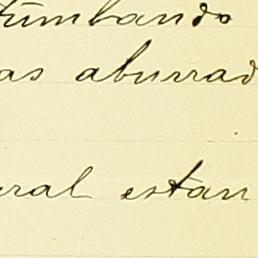 tumbando
as aburrad
ral estan